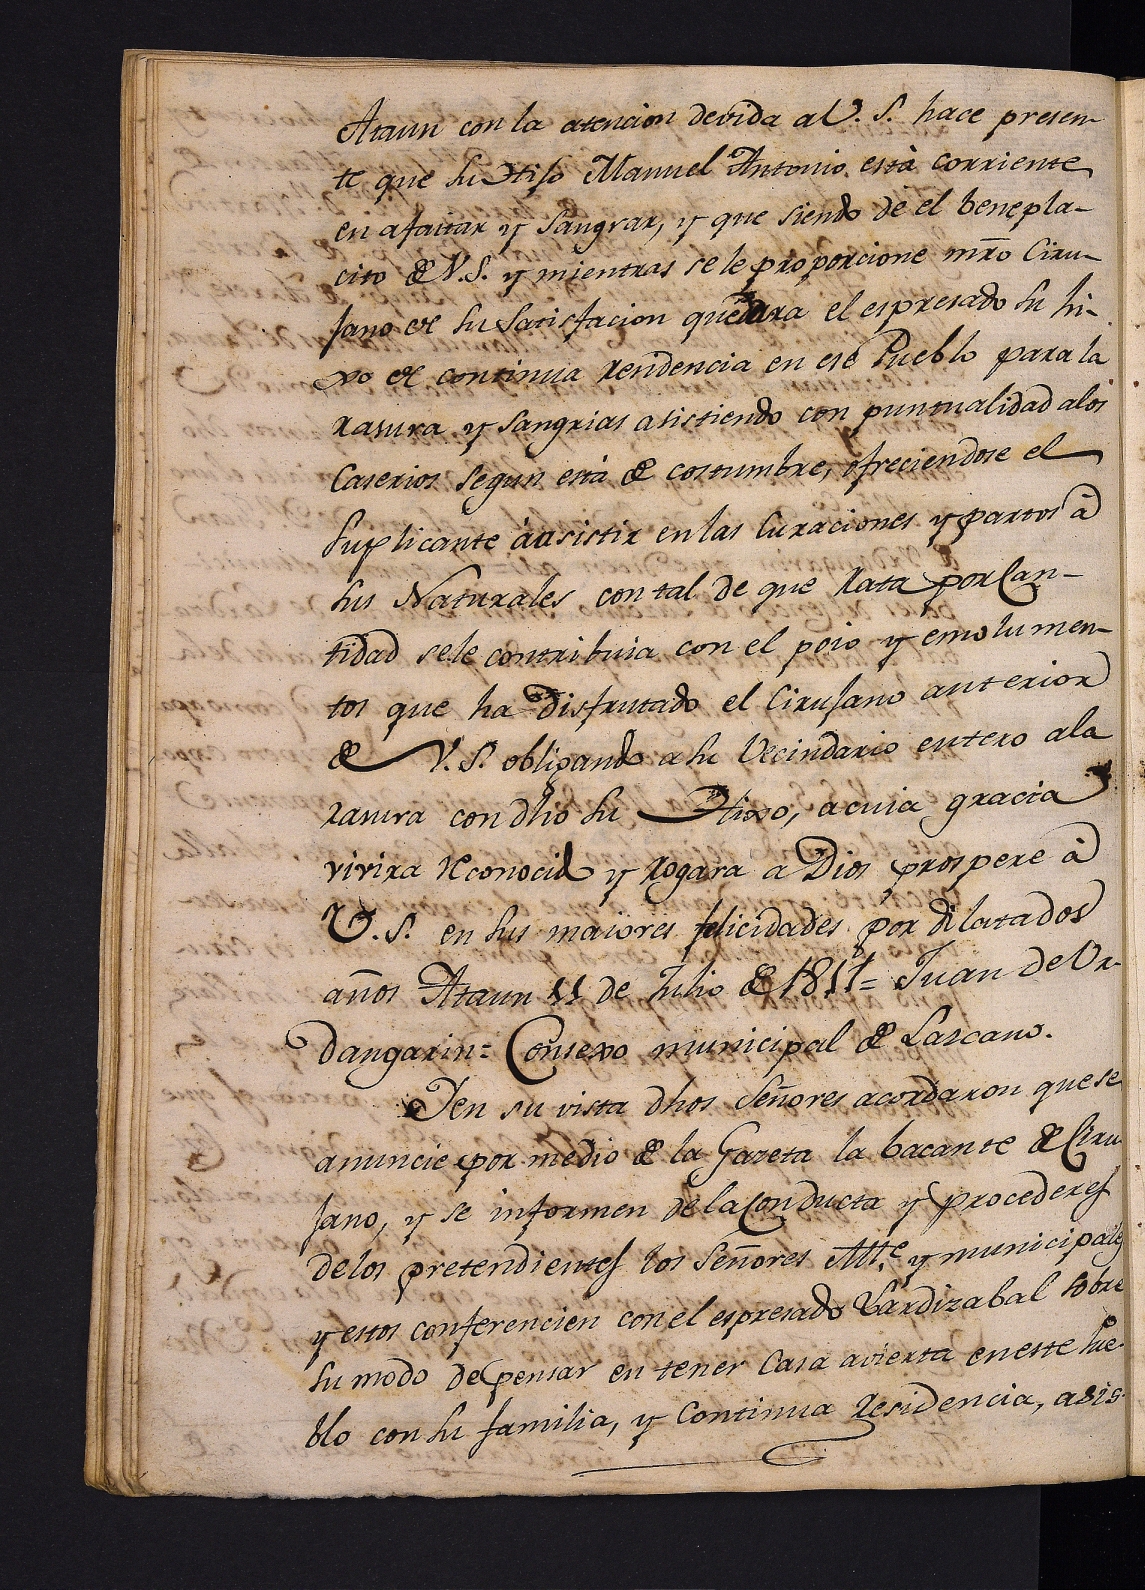 Ataun con la atencion devida a V. S. hace presen-
te que su Hijo Manuel Antonio està corriente
en afaitar y sangrar, y que siendo de el benepla-
cito de V. S. y mientras se le proporcione mrõ Ciru-
jano de su satisfacion quedara el espresado su hi-
xo de continua residencia en ese Pueblo para la
rasura y sangrias asistiendo con puntualidad alos
Caserios segun està de costumbre, ofreciendose el
suplicante à asistir en las Curaciones y partos à
sus Naturales con tal de que rata por Can-
tidad sele contribuia con el peio y emolumen-
tos que ha disfrutado el Cirujano anterior
de V. S. obligando a su Vecindario entero ala
rasura con dho su Hixo, a cuia gracia
vivira reconocido y rogara a Dios prospere à
V. S. en sus maiores felicidades por dilatados
años Ataun 11 de Julio de 1811 = Juan de Ur-
dangarin = Consexo municipal de Lazcano.
Y en su vista dhos Señores acordaron que se
anuncie por medio de la Gazeta la bacante de Ciru
jano, y se informen de la Conducta y procederes
delos pretendientes los Señores Alte. y municipales
y estos conferencien con el espresado Lardizabal sobre
su modo de pensar en tener Casa avierta en este Pue-
blo con su familia, y Continua Residencia, asis-